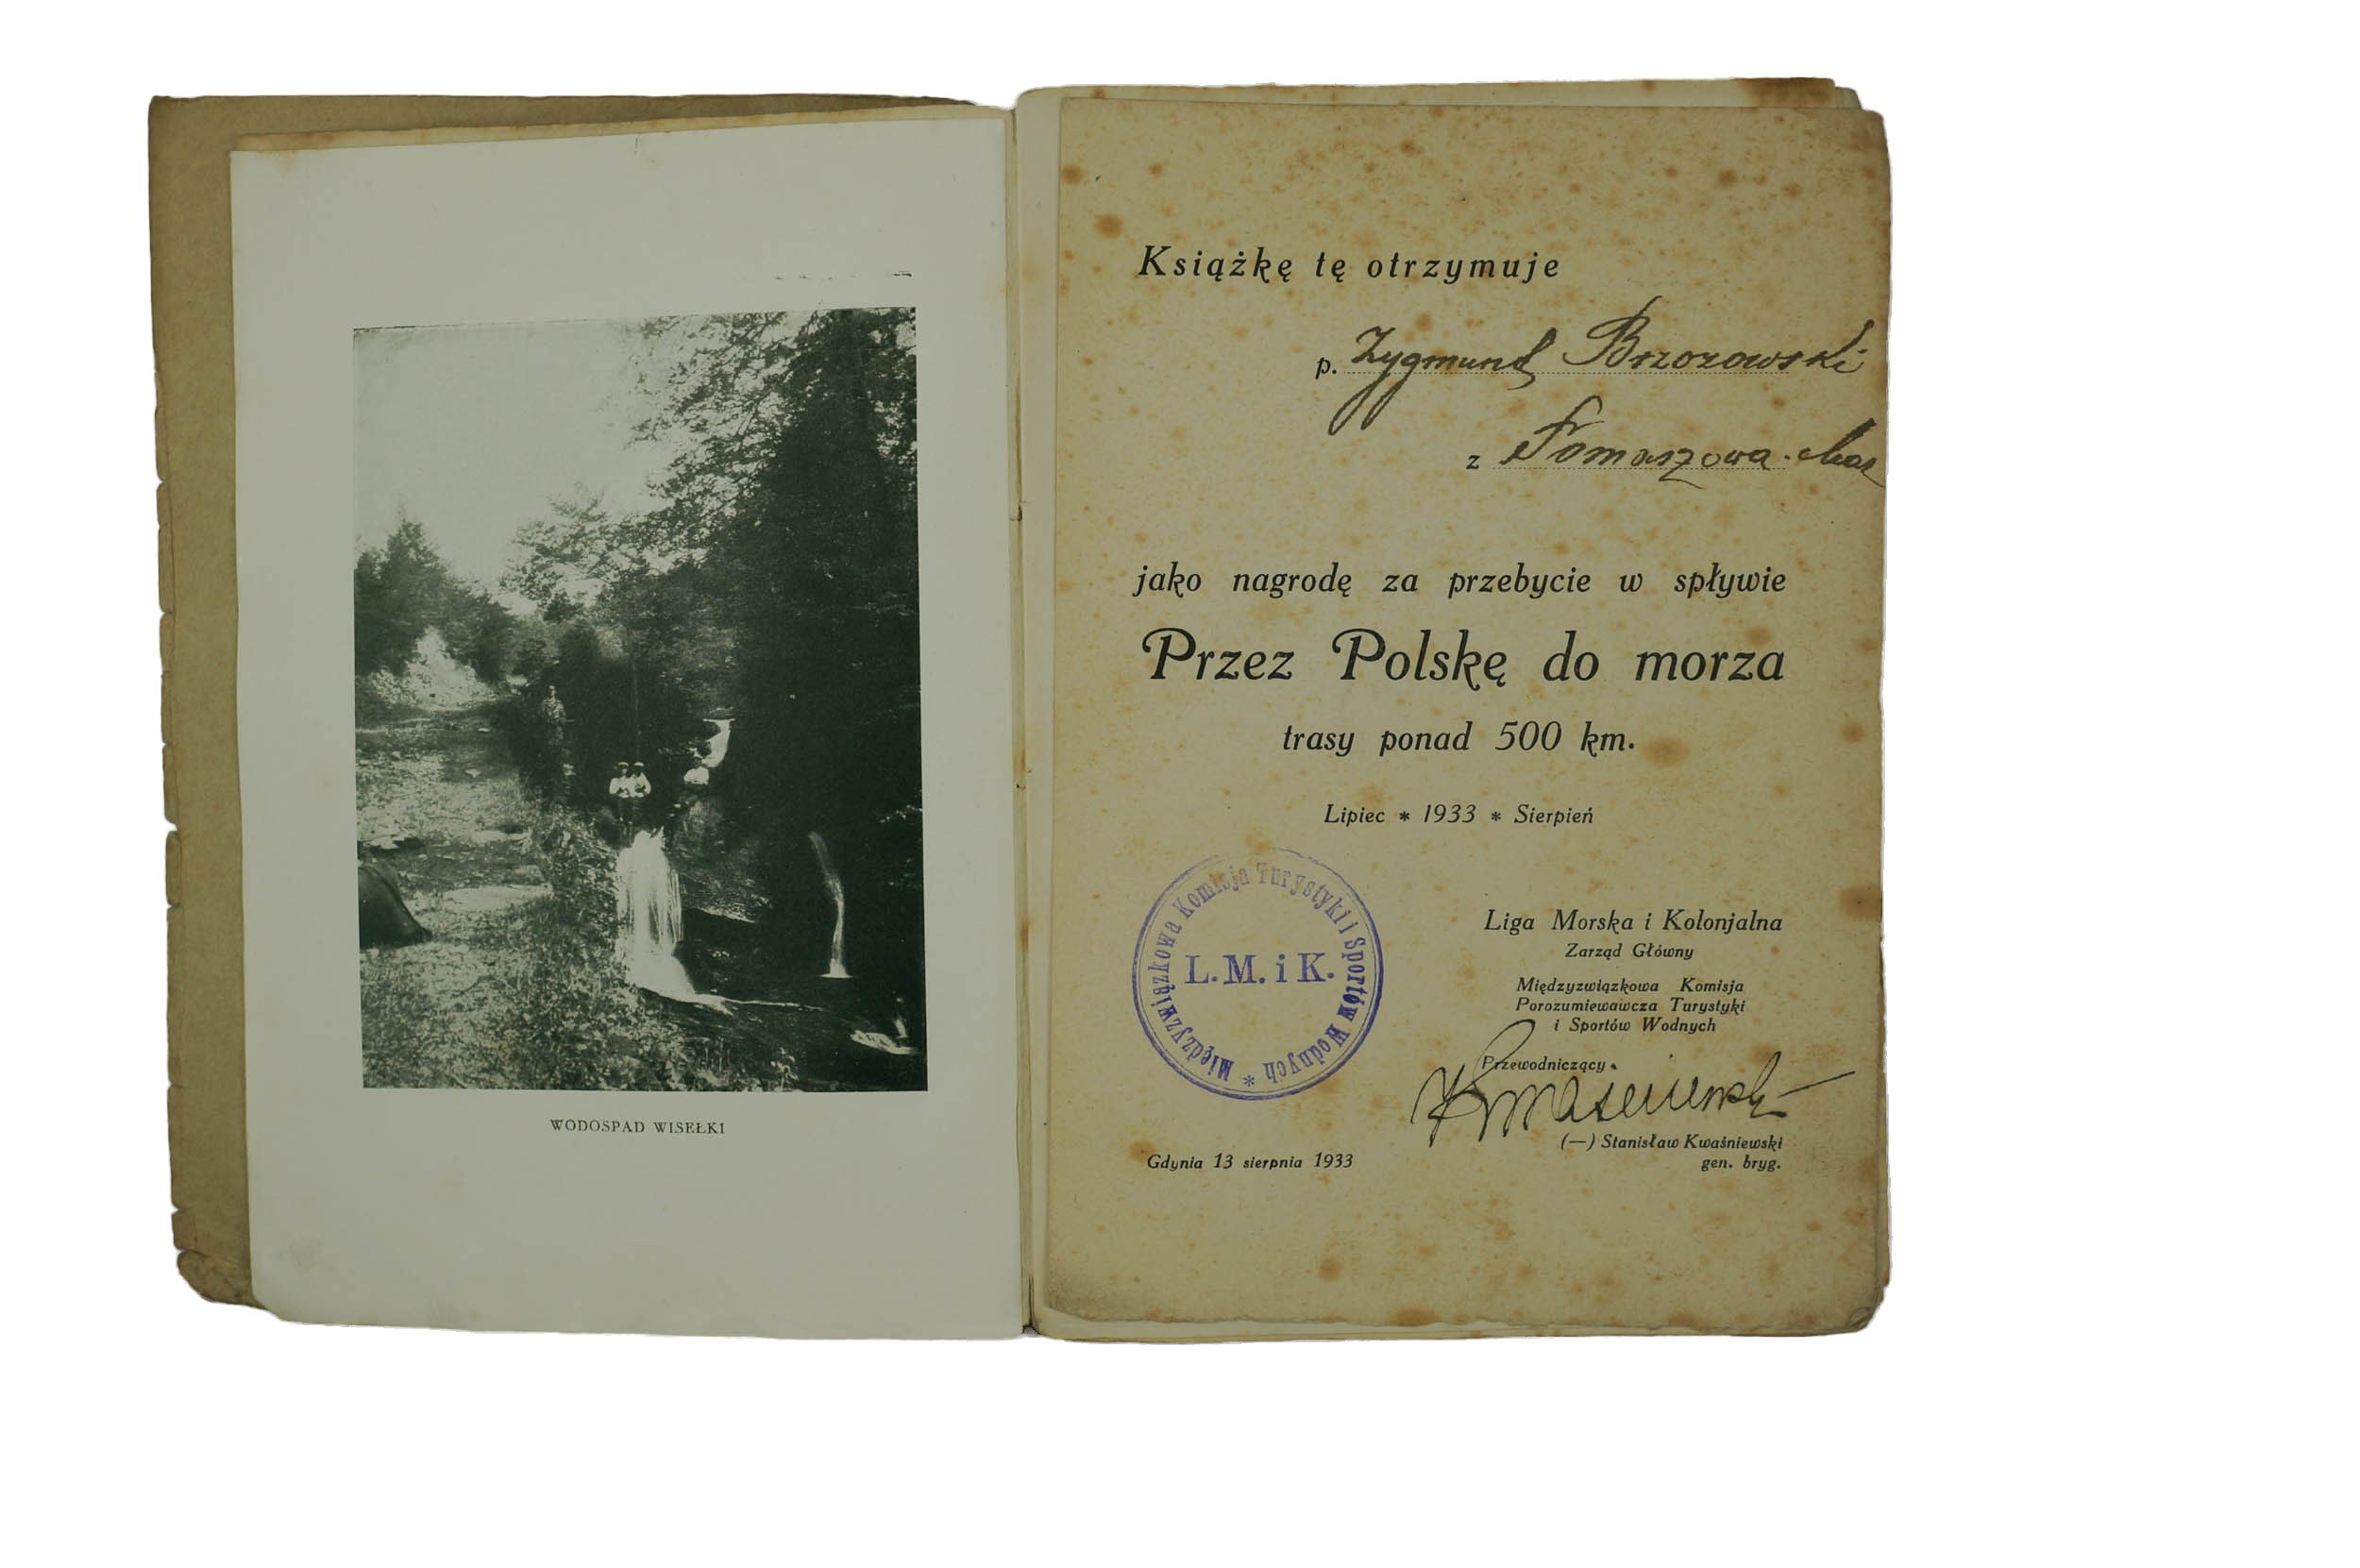 WODOSPAD WISEŁKI
Książkę tę otrzymuje
p. Zygmunt Brzozowski
z Tomaszowa. Maz
jako nagrodę za przebycie w spływie
Przez Polskę do morza
trasy ponad 500 km.
Lipiec * 1933 * Sierpień
Międzyzwiązkowa Komisja Turystyki i Sportów Wodnych *
L. M. i K.
Liga Morska i Kolonjalna
Zarząd Główny
Międzyzwiązkowa Komisja
Porozumiewawcza Turystyki
i Sportów Wodnych
Przewodniczący
Kwaśniewski
(—) Stanisław Kwaśniewski
gen. bryg.
Gdynia 13 sierpnia 1933